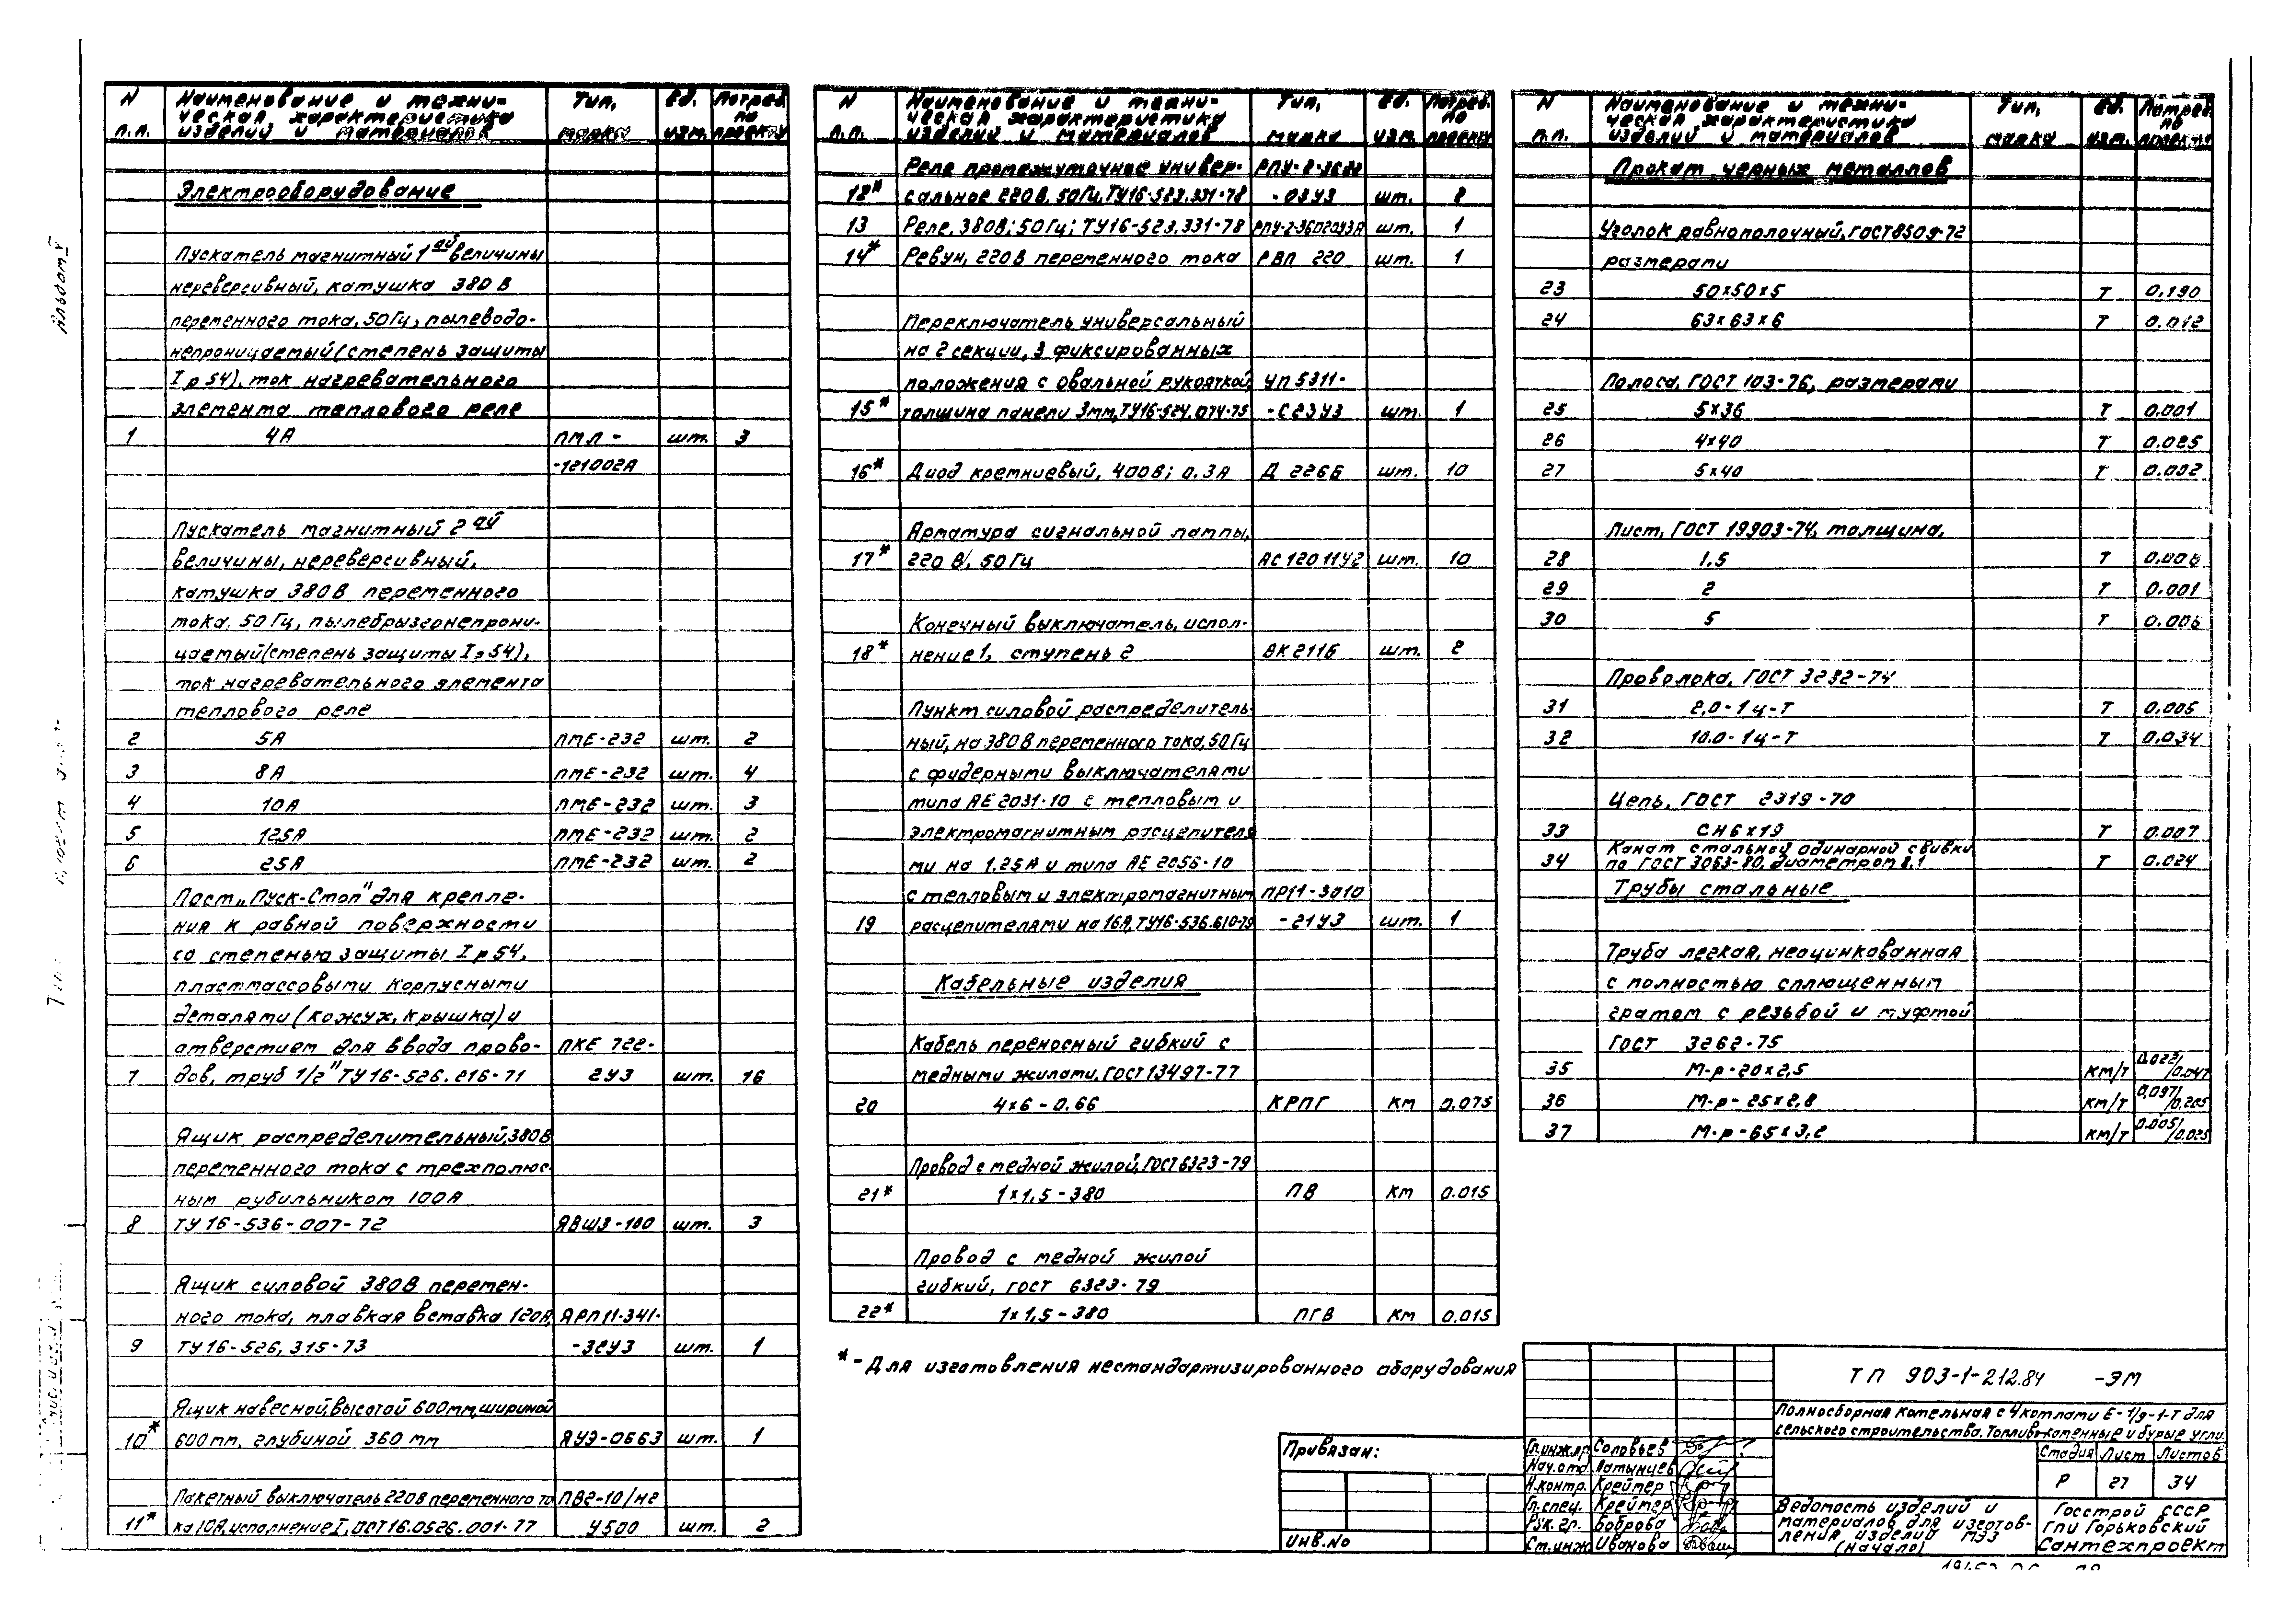 Альбом V
N п.п. Наименование и техническая характеристика изделий и материалов Тип, марка Ед. изм. Потреб. по проекту
Электрооборудование
Пускатель магнитный 1ой величины
нереверсивный, катушка 380 В
переменного тока, 50 Гц, пылеводо-
непроницаемый (степень защиты
Iр 54), ток нагревательного
элемента теплового реле
1 4А ПМЛ- шт. 3
-121002А
Пускатель магнитный 2ой
величины, нереверсивный,
катушка 380 В переменного
тока, 50 Гц, пылебрызгонепрони-
цаемый (степень защиты Iр 54),
ток нагревательного элемента
теплового реле
2 5А ПМЕ-232 шт. 2
3 8А ПМЕ-232 шт. 4
4 10А ПМЕ-232 шт. 3
5 12,5А ПМЕ-232 шт. 2
6 25А ПМЕ-232 шт. 2
Пост „Пуск-Стоп" для крепле-
ния к равной поверхности
со степенью защиты Iр 54,
пластмассовыми корпусными
деталями (кожух, крышка) и
отверстием для ввода прово- ПКЕ 722-
7 дов, труб 1/2" ТУ 16-526.216-71 2У3 шт. 16
Ящик распределительный, 380 В
переменного тока с трехполюс-
ным рубильником 100А
8 ТУ 16-536-007-72 ЯВШ3-100 шт. 3
Ящик силовой 380 В перемен-
ного тока, плавкая вставка 120А, ЯРП11-341-
9 ТУ 16-526, 315-73 -32У3 шт. 1
Ящик навесной, высотой 600мм, шириной
10* 600мм, глубиной 360 мм ЯУЭ-0663 шт. 1
Пакетный выключатель 220В переменного то ПВ2-10/н2
11* ка 10А, исполнение I, ОСТ 16.0526.001-77 У500 шт. 2
N п.п. Наименование и техническая характеристика изделий и материалов Тип, марка Ед. изм. Потреб. по проекту
Реле промежуточное универ- РПУ-2-3620
12* сальное 220 В, 50 Гц, ТУ16-523.331-78 -03У3 шт. 8
13 Реле, 380В; 50 Гц; ТУ16-523.331-78 РПУ-2-362023А шт. 1
14* Ревун, 220 В переменного тока РВП 220 шт. 1
Переключатель универсальный
на 2 секции, 3 фиксированных
положения с овальной рукояткой, УП 5311-
15* толщина панели 3мм, ТУ16-524.074-75 -С23У3 шт. 1
16* Диод кремниевый, 400 В; 0.3А Д 226Б шт. 10
Арматура сигнальной лампы,
17* 220 В, 50 Гц АС 12011У2 шт. 10
Конечный выключатель, испол-
18* нение 1, ступень 2 ВК 211Б шт. 2
Пункт силовой распределитель-
ный, на 380 В переменного тока, 50 Гц
с фидерными выключателями
типа АЕ 2031-10 с тепловым и
электромагнитным расцепителя
ми на 1.25А и типа АЕ 2056-10
с тепловым и электромагнитным ПР11-3010
19 расцепителями на 16А, ТУ16-536.610-79 -21У3 шт. 1
Кабельные изделия
Кабель переносный гибкий с
медными жилами, ГОСТ 13497-77
20 4х6-0.66 КРПГ км 0.075
Провод с медной жилой, ГОСТ 6323-79
21* 1х1,5-380 ПВ км 0.015
Провод с медной жилой
гибкий, ГОСТ 6323-79
22* 1х1,5-380 ПГВ км 0.015
* - Для изготовления нестандартизированного оборудования
N п.п. Наименование и техническая характеристика изделий и материалов Тип, марка Ед. изм. Потреб. по проекту
Прокат черных металлов
Уголок равнополочный, ГОСТ 8509-72
размерами
23 50х50х5 т 0.190
24 63х63х6 т 0.012
Полоса, ГОСТ 103-76, размерами
25 5х36 т 0.001
26 4х40 т 0.025
27 5х40 т 0.002
Лист, ГОСТ 19903-74, толщина,
28 1.5 т
29 2 т 0.001
30 5 т 0.006
Проволока, ГОСТ 3282-74
31 2,0-1ц-Т т 0.005
32 10.0-1ц-Т т 0.034
Цепь, ГОСТ 2319-70
33 СН6х19 т 0.007
Канат стальной одинарной свивки
34 по ГОСТ 3063-80, диаметром 8.1 т 0.024
Трубы стальные
Труба легкая, неоцинкованная
с полностью сплющенным
гратом с резьбой и муфтой
ГОСТ 3262-75
35 М-р-20х2,5 км/т 0.022/0.047
36 М-р-25х2,8 км/т 0,097/0.205
37 М-р-65х3,2 км/т 0.005/0.025
ТП 903-1-212.84 -ЭМ
Полносборная котельная с 4 котлами Е-1/9-1-Т для
сельского строительства. Топливо-каменные и бурые угли.
Стадия Лист Листов
Р 27 34
Привязан:
Инв.No
Гл.инж.пр. Соловьев
Нач.отд. Латынцев
Н.контр. Креймер
Гл.спец. Креймер
Рук.гр. Боброва
Ст.инж Иванова
Ведомость изделий и
материалов для изготов-
ления изделий
МЭЗ
(начало)
Госстрой СССР
ГПИ Горьковский
Сантехпроект